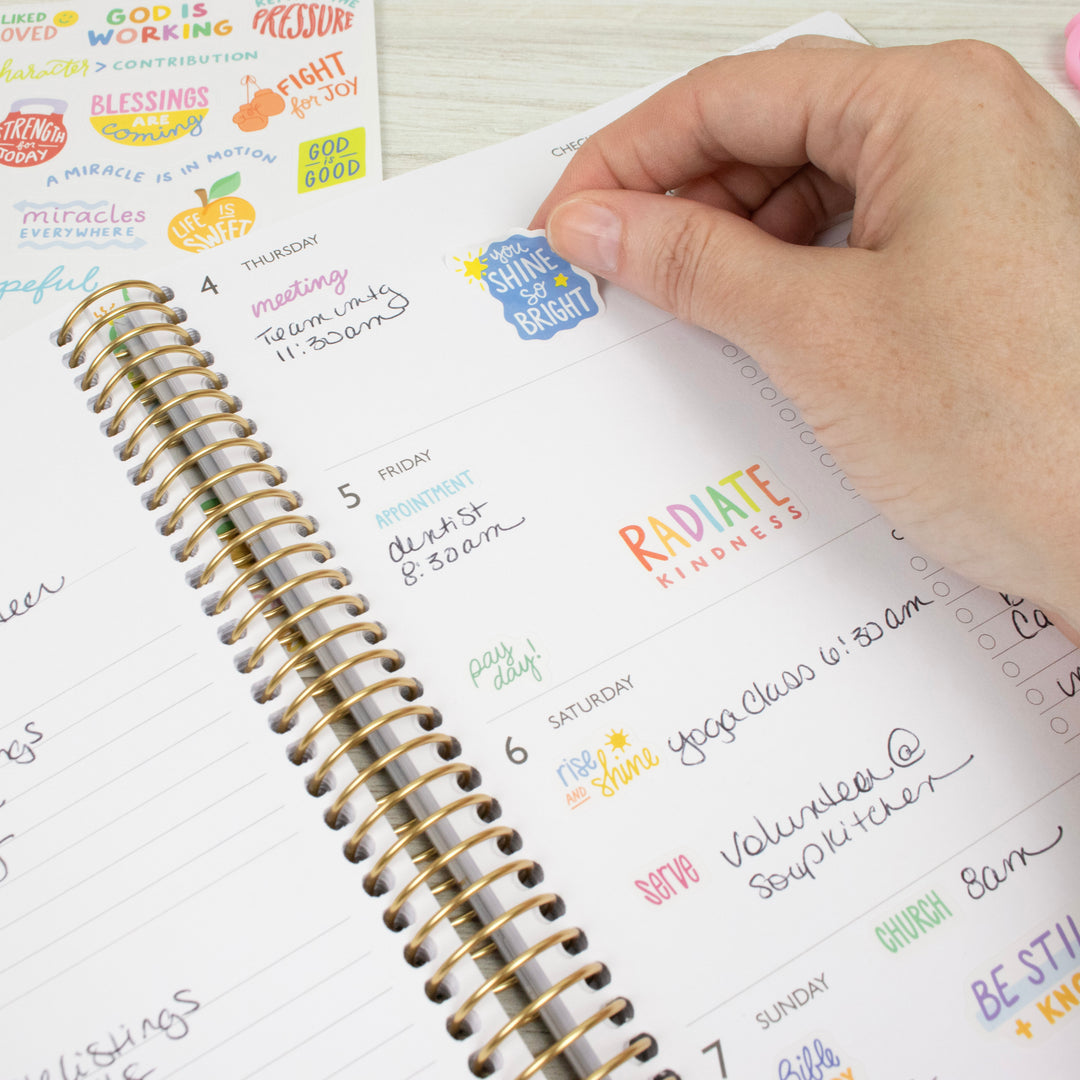 LIKED
LOVED
GOD IS
WORKING
PRESSURE
character > CONTRIBUTION
BLESSINGS
ARE
coming
FIGHT
for JOY
STRENGTH
for
TODAY
A MIRACLE IS IN MOTION
GOD
is
GOOD
miracles
EVERYWHERE
LIFE IS
SWEET
4 THURSDAY
meeting
Team mtg
11:30am
you
SHINE
SO
BRIGHT
5 FRIDAY
APPOINTMENT
dentist
8:30am
RADIATE
KINDNESS
pay
day!
6 SATURDAY
rise
AND shine
yoga class 6:30am
serve
volunteer @
soup kitchen
CHURCH
8am
7 SUNDAY
BE STILL
+ KNOW
Bible